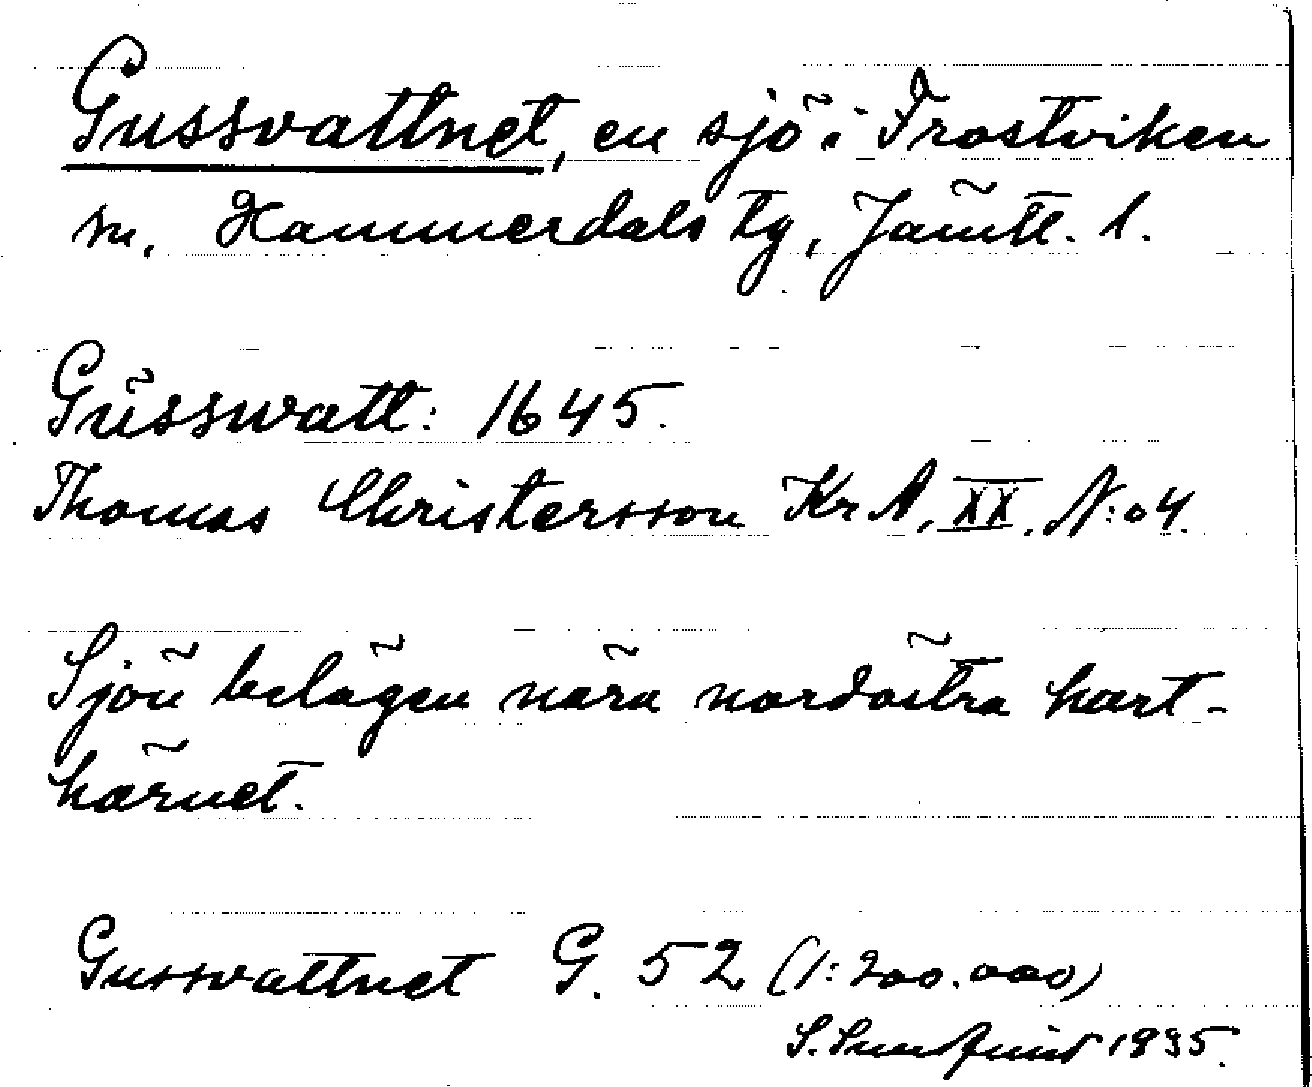 Gussvattnet, en sjö i Frostviken
sn. Hammerdals tg, Jämtl. l.
Gusswatt: 1645.
Thomas Christersson Kr A. XX. N:o 4.
Sjön belägen nära nordöstra kart-
hörnet.
Gussvattnet G. 52 (1:200.000)
S. 1935.